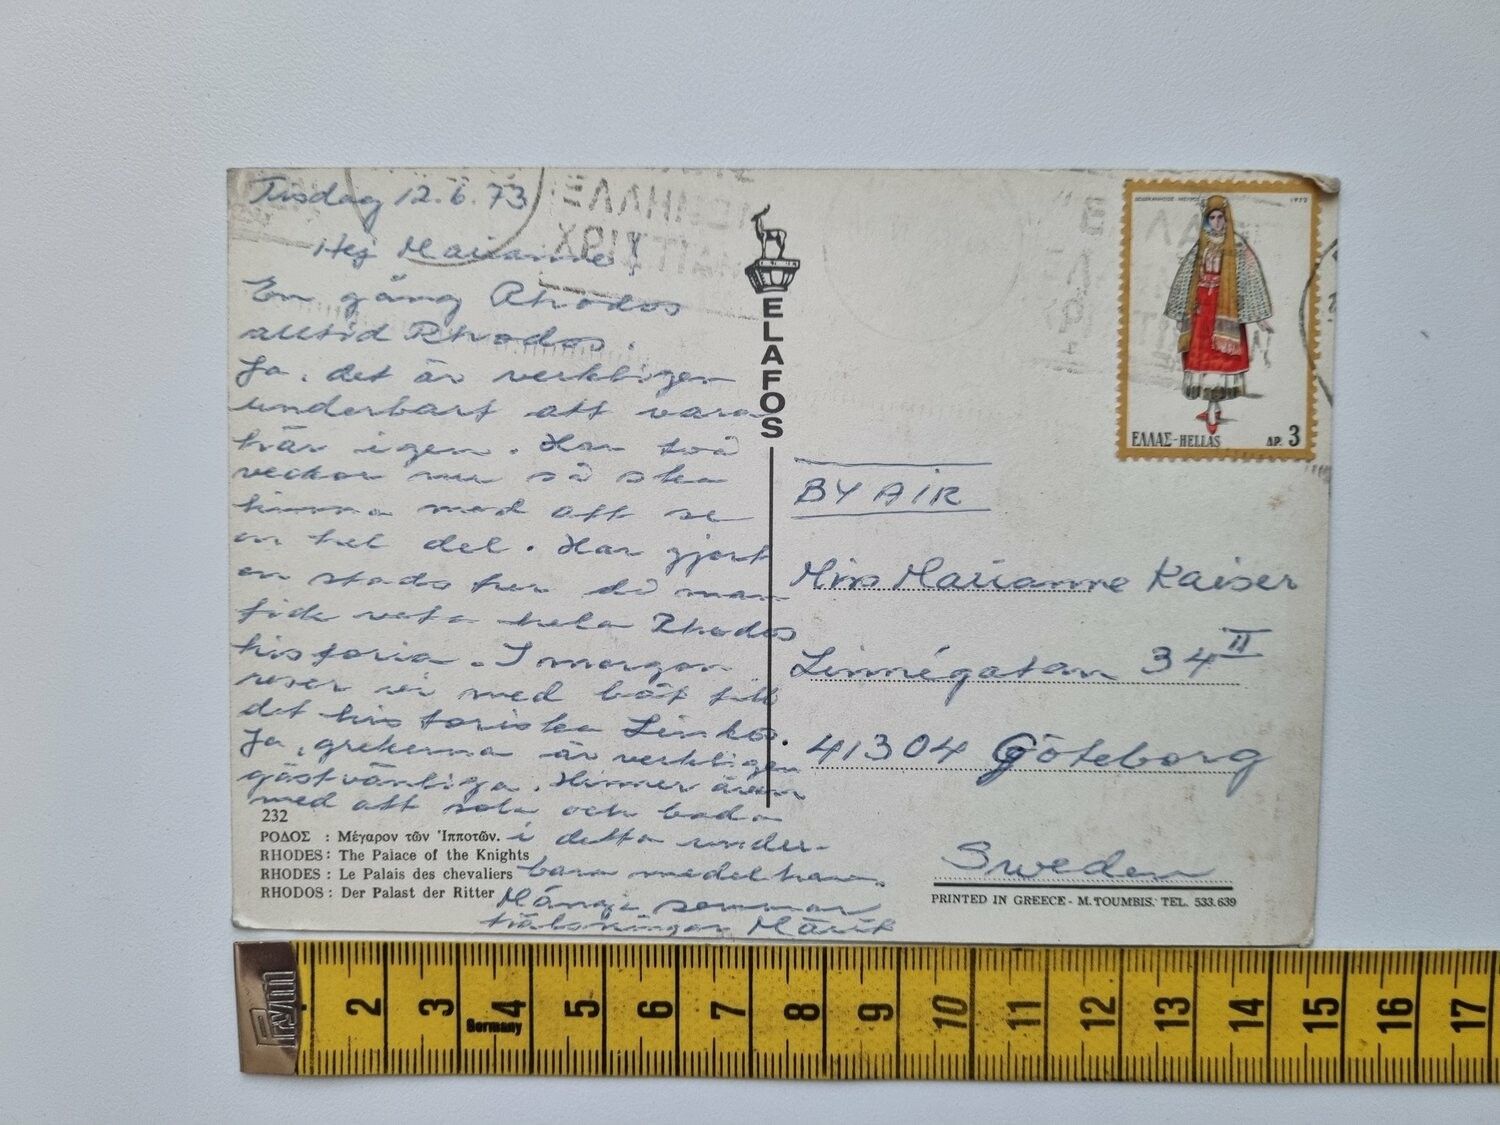 Tisdag 12.6.73
Hej Marianne!
En gång Rhodos
alltid Rhodos.
Ja, det är verkligen
underbart att vara
här igen. Har två
veckor nu så ska
hinna med att se
en hel del. Har gjort
en stadstur då man
fick veta hela Rhodos
historia. I morgon
reser vi med båt till
det historiska Lindos.
Ja, grekerna är verkligen
gästvänliga. Hinner även
med att sola och bada
i detta under-
bara medelhav.
Många sommar
hälsningar Märit
232
ΡΟΔΟΣ : Μέγαρον τῶν Ἱπποτῶν.
RHODES : The Palace of the Knights
RHODES : Le Palais des chevaliers
RHODOS : Der Palast der Ritter
ELAFOS
1972
ΕΛΛΑΣ-HELLAS ΔΡ. 3
BY AIR
Miss Marianne Kaiser
Linnégatan 34 II
41304 Göteborg
Sweden
PRINTED IN GREECE - M. TOUMBIS. TEL. 533.639
Prym
Germany
2 3 4 5 6 7 8 9 10 11 12 13 14 15 16 17